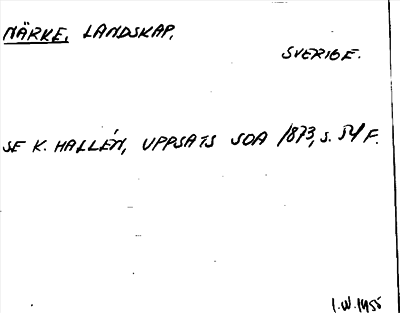 NÄRKE, LANDSKAP.
SVERIGE.
SE K. HALLÉN, UPPSATS SOA 1873, S. 54 F.
I.W. 1955